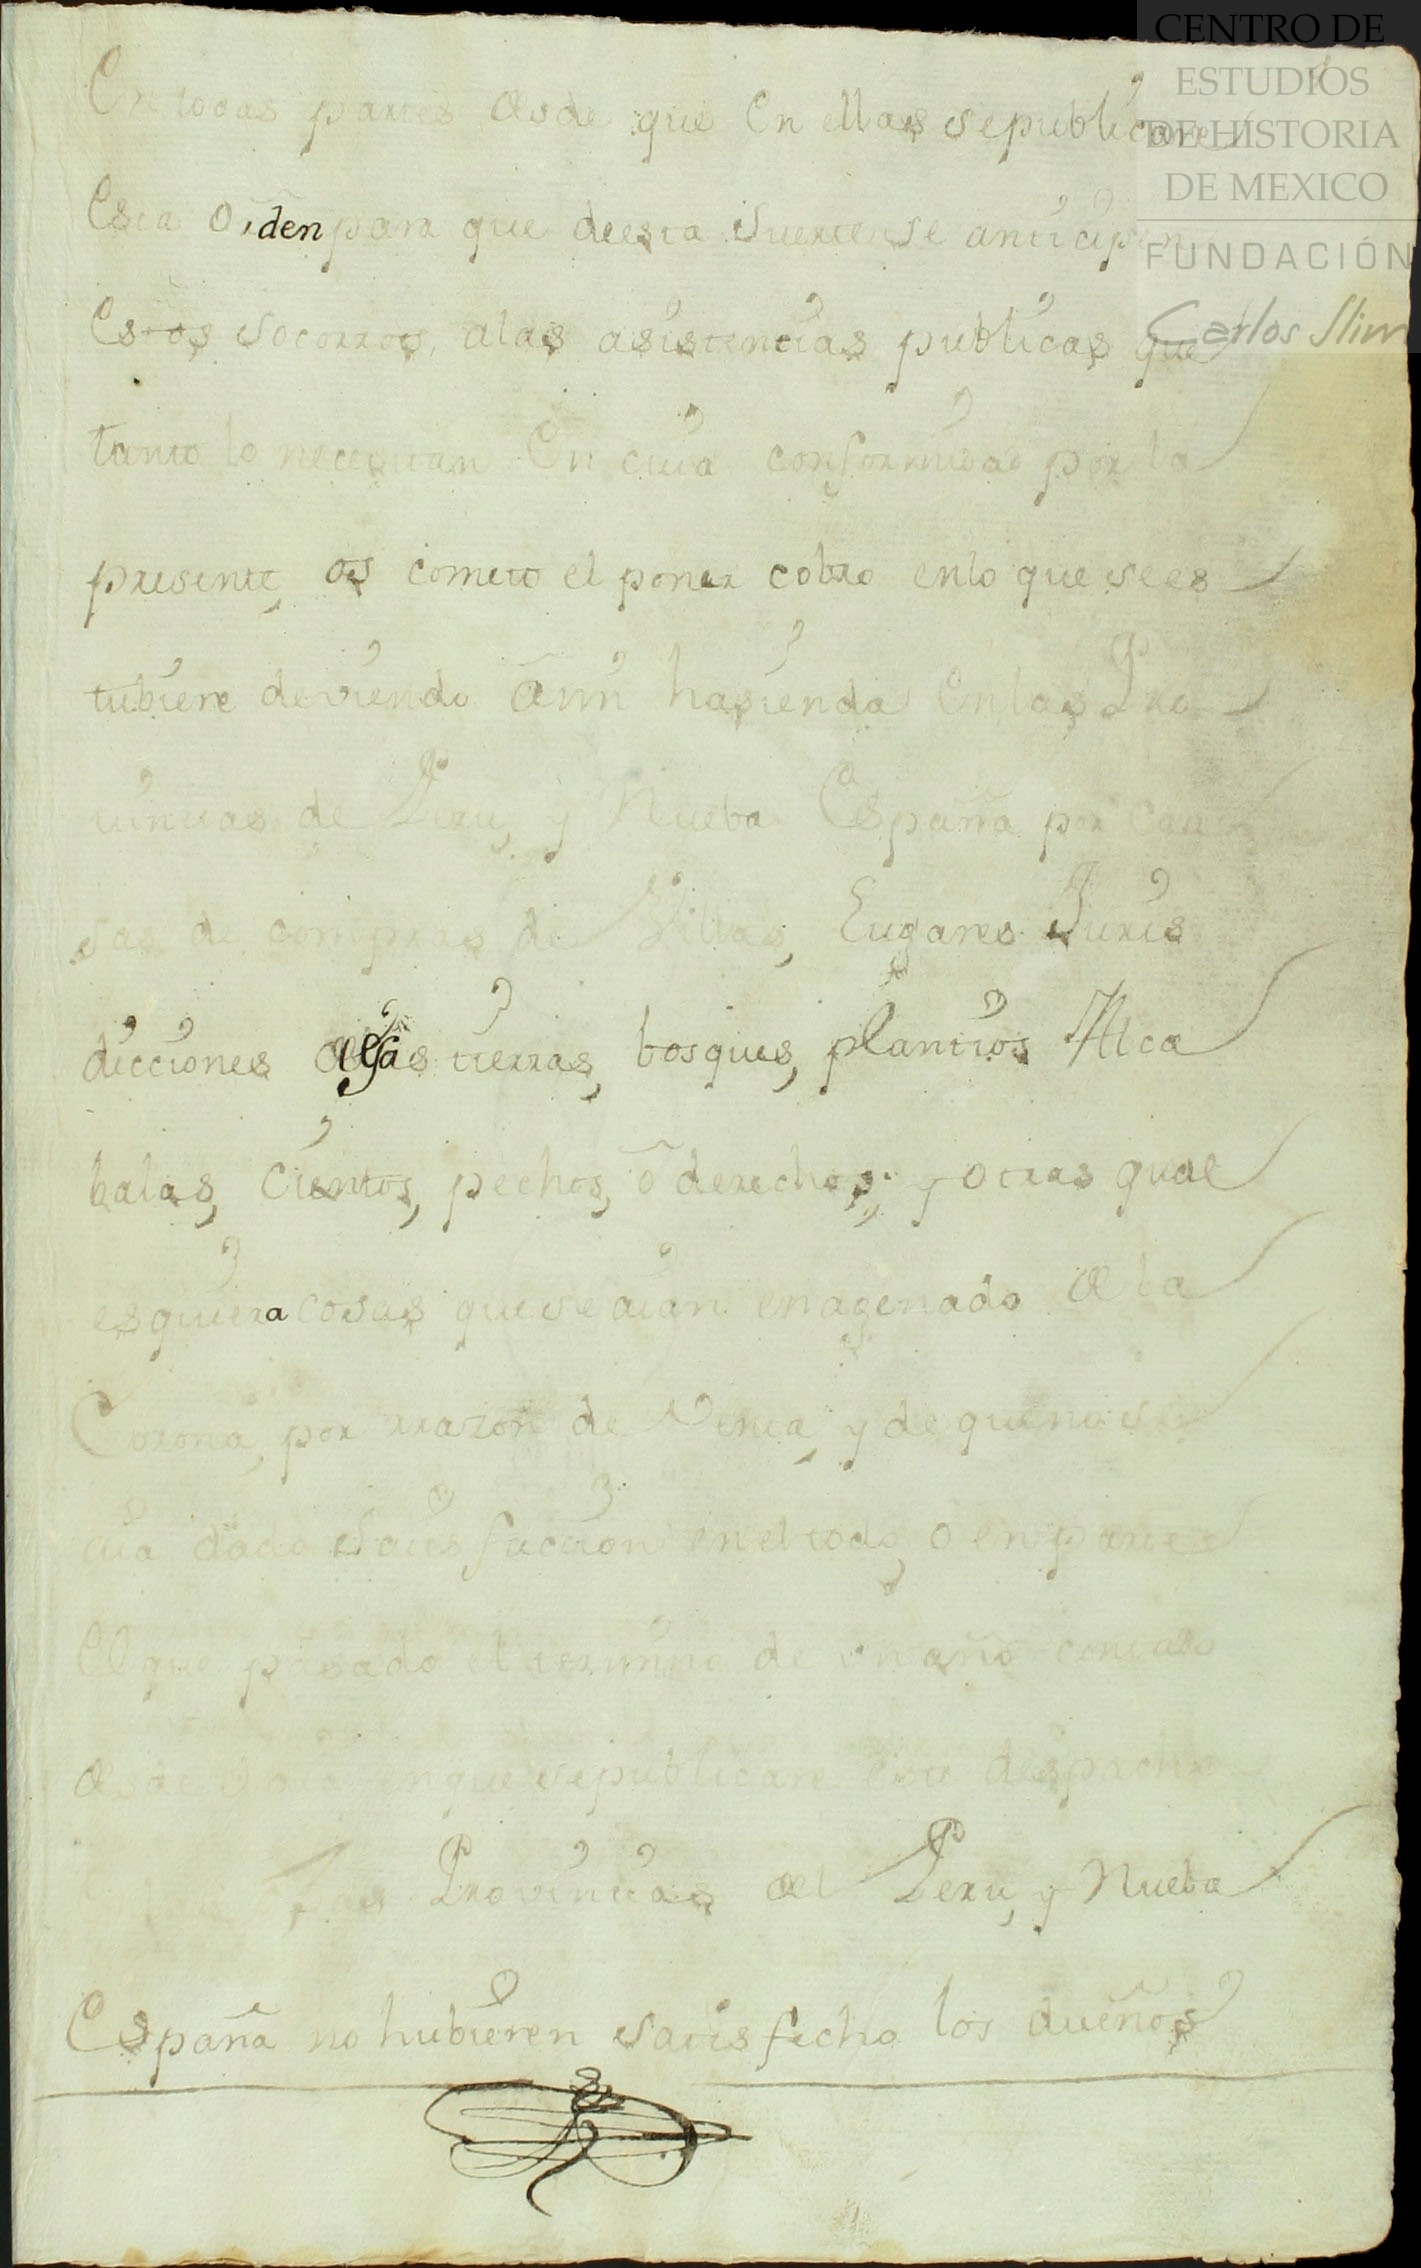 En todas partes desde que en ellas se publicare
Esta Orden para que de esta suerte se anticipen
Estos socorros, a las asistencias publicas que
tanto lo necesitan En cuia conformidad por la
presente, os cometo el poner cobro en lo que se es
tubiere deviendo â mi hasienda en las Pro
vincias de Peru, y Nueba España por cau
sas de compras de Villas, Lugares Juris
dicciones deesas tierras, bosques, plantios Alca
balas, Cientos, pechos, ô derechos, y otras qual
esquiera cosas que se aian enagenado de la
Corona, por rrazon de Venta, y de que no se
aia dado satisfaccion en el todo, o en parte
El que pasado el termino de un año contado
desde en que se publicare este despacho
Provincias del Peru, y Nueba
España no hubieren satisfecho los dueños
CENTRO DE
ESTUDIOS
DE HISTORIA
DE MEXICO
FUNDACIÓN
Carlos Slim